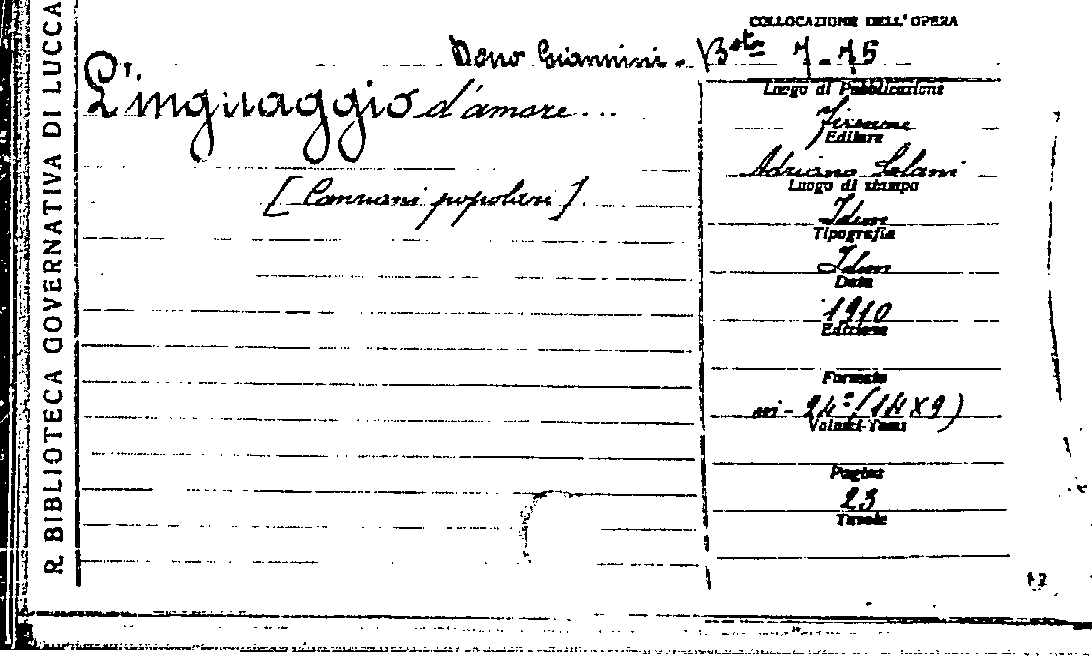 R. BIBLIOTECA GOVERNATIVA DI LUCCA
COLLOCAZIONE DELL' OPERA
Dono Giannini - B.sta 7-75
Linguaggio d'amore...
[Canzoni popolari].
Luogo di Pubblicazione
Firenze
Editore
Adriano Salani
Luogo di stampa
Idem
Tipografia
Idem
Data
1910
Edizione
Formato
24°/(14x9)
Volumi-Tomi
Pagine
23
Tavole